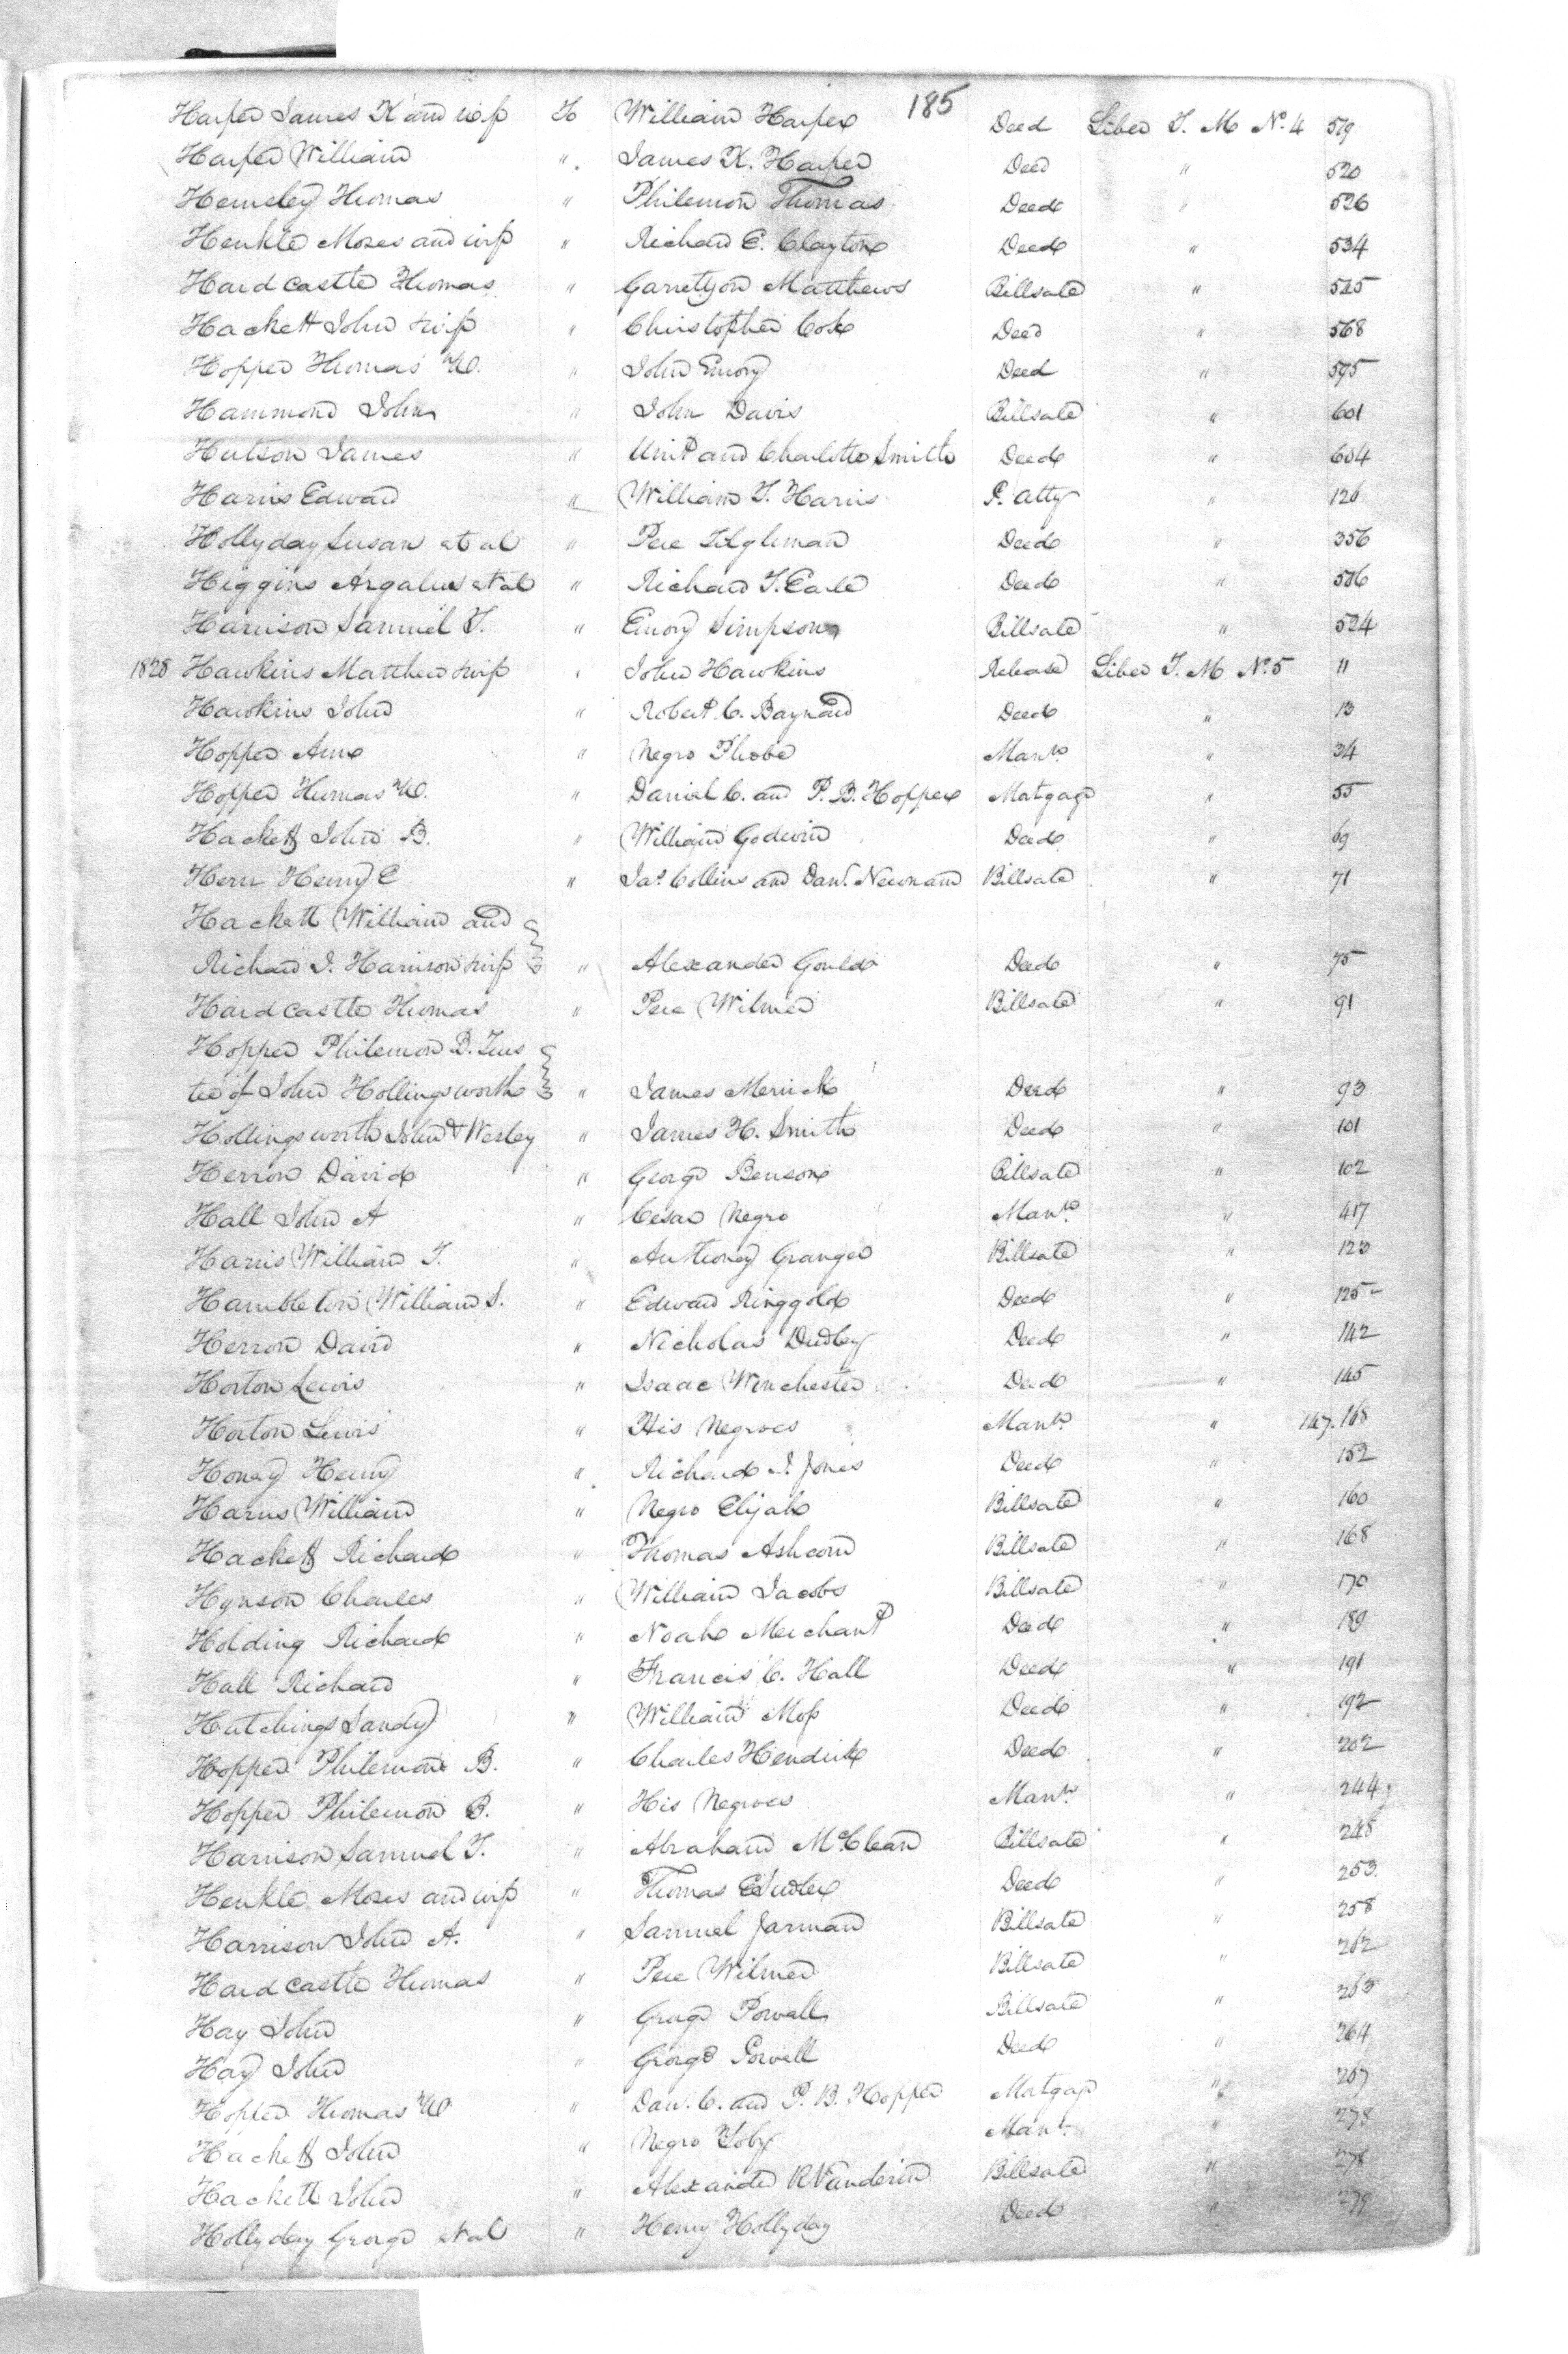 185
Harper James K and wife To William Harper Deed Liber T. M No. 4 519
Harper William " James K. Harper Deed " 520
Hemsley Thomas " Philemon Thomas Deed " 526
Henkle Moses and wife " Richard E. Clayton Deed " 534
Hardcastle Thomas " Garretson Matthews Billsale " 545
Hackett John & wife " Christopher Cox Deed " 568
Hopper Thomas W. " John Emory Deed " 595
Hammond John " John Davis Billsale " 601
Hutson James " Unit and Charlotte Smith Deed " 604
Harris Edward " William T. Harris P. Atty " 126
Hollyday Susan et al " Pere Tilghman Deed " 356
Higgins Argalus et al " Richard T. Earle Deed " 506
Harrison Samuel T. " Emory Simpson Billsale " 524
1828 Hawkins Matthew & wife " John Hawkins Release Liber T. M No. 5 11
Hawkins John " Robert C. Baynard Deed " 13
Hopper Ann " Negro Phobe Mann. " 34
Hopper Thomas W. " Daniel C. and P. B. Hopper Mortgage " 55
Hackett John B. " William Godwin Deed " 69
Hern Henry C " Jas. Collins and Danl. Newnam Billsale " 71
Hackett William and
Richard I. Harrison & wife " Alexander Gould Deed " 75
Hardcastle Thomas " Pere Wilmer Billsale " 91
Hopper Philemon B. Trus
tee of John Hollingsworth " James Merrick Deed " 93
Hollingsworth John & Wesley " James H. Smith Deed " 101
Herron David " George Benson Billsale " 102
Hall John A " Cesar Negro Mann. " 417
Harris William T. " Anthoney Granger Billsale " 123
Hambleton William S. " Edward Ringgold Deed " 125
Herron David " Nicholas Dudley Deed " 142
Horton Lewis " Isaac Winchester Deed " 145
Horton Lewis " His Negroes Mann. " 147. 168
Honey Henry " Richard I. Jones Deed " 152
Harris William " Negro Elijah Billsale " 160
Hackett Richard " Thomas Ashcom Billsale " 168
Hynson Charles " William Jacobs Billsale " 170
Holding Richard " Noah Merchant Deed " 189
Hall Richard " Francis C. Hall Deed " 191
Hutchings Sandy " William Moss Deed " 192
Hopper Philemon B. " Charles Hendrix Deed " 202
Hopper Philemon B. " His Negroes Mann. " 244
Harrison Samuel T. " Abraham McClean Billsale " 248
Henkle Moses and wife " Thomas Deed " 253
Harrison John A. " Samuel Jarman Billsale " 258
Hardcastle Thomas " Pere Wilmer Billsale " 262
Hay John " George Powell Billsale " 263
Hay John " George Powell Deed " 264
Hopper Thomas W " Danl. C. and P. B. Hopper Mortgage " 267
Hackett John " Negro Toby Mann. " 278
Hackett John " Alexander R Vanderin Billsale " 278
Hollyday George et al " Henry Hollyday Deed " 279